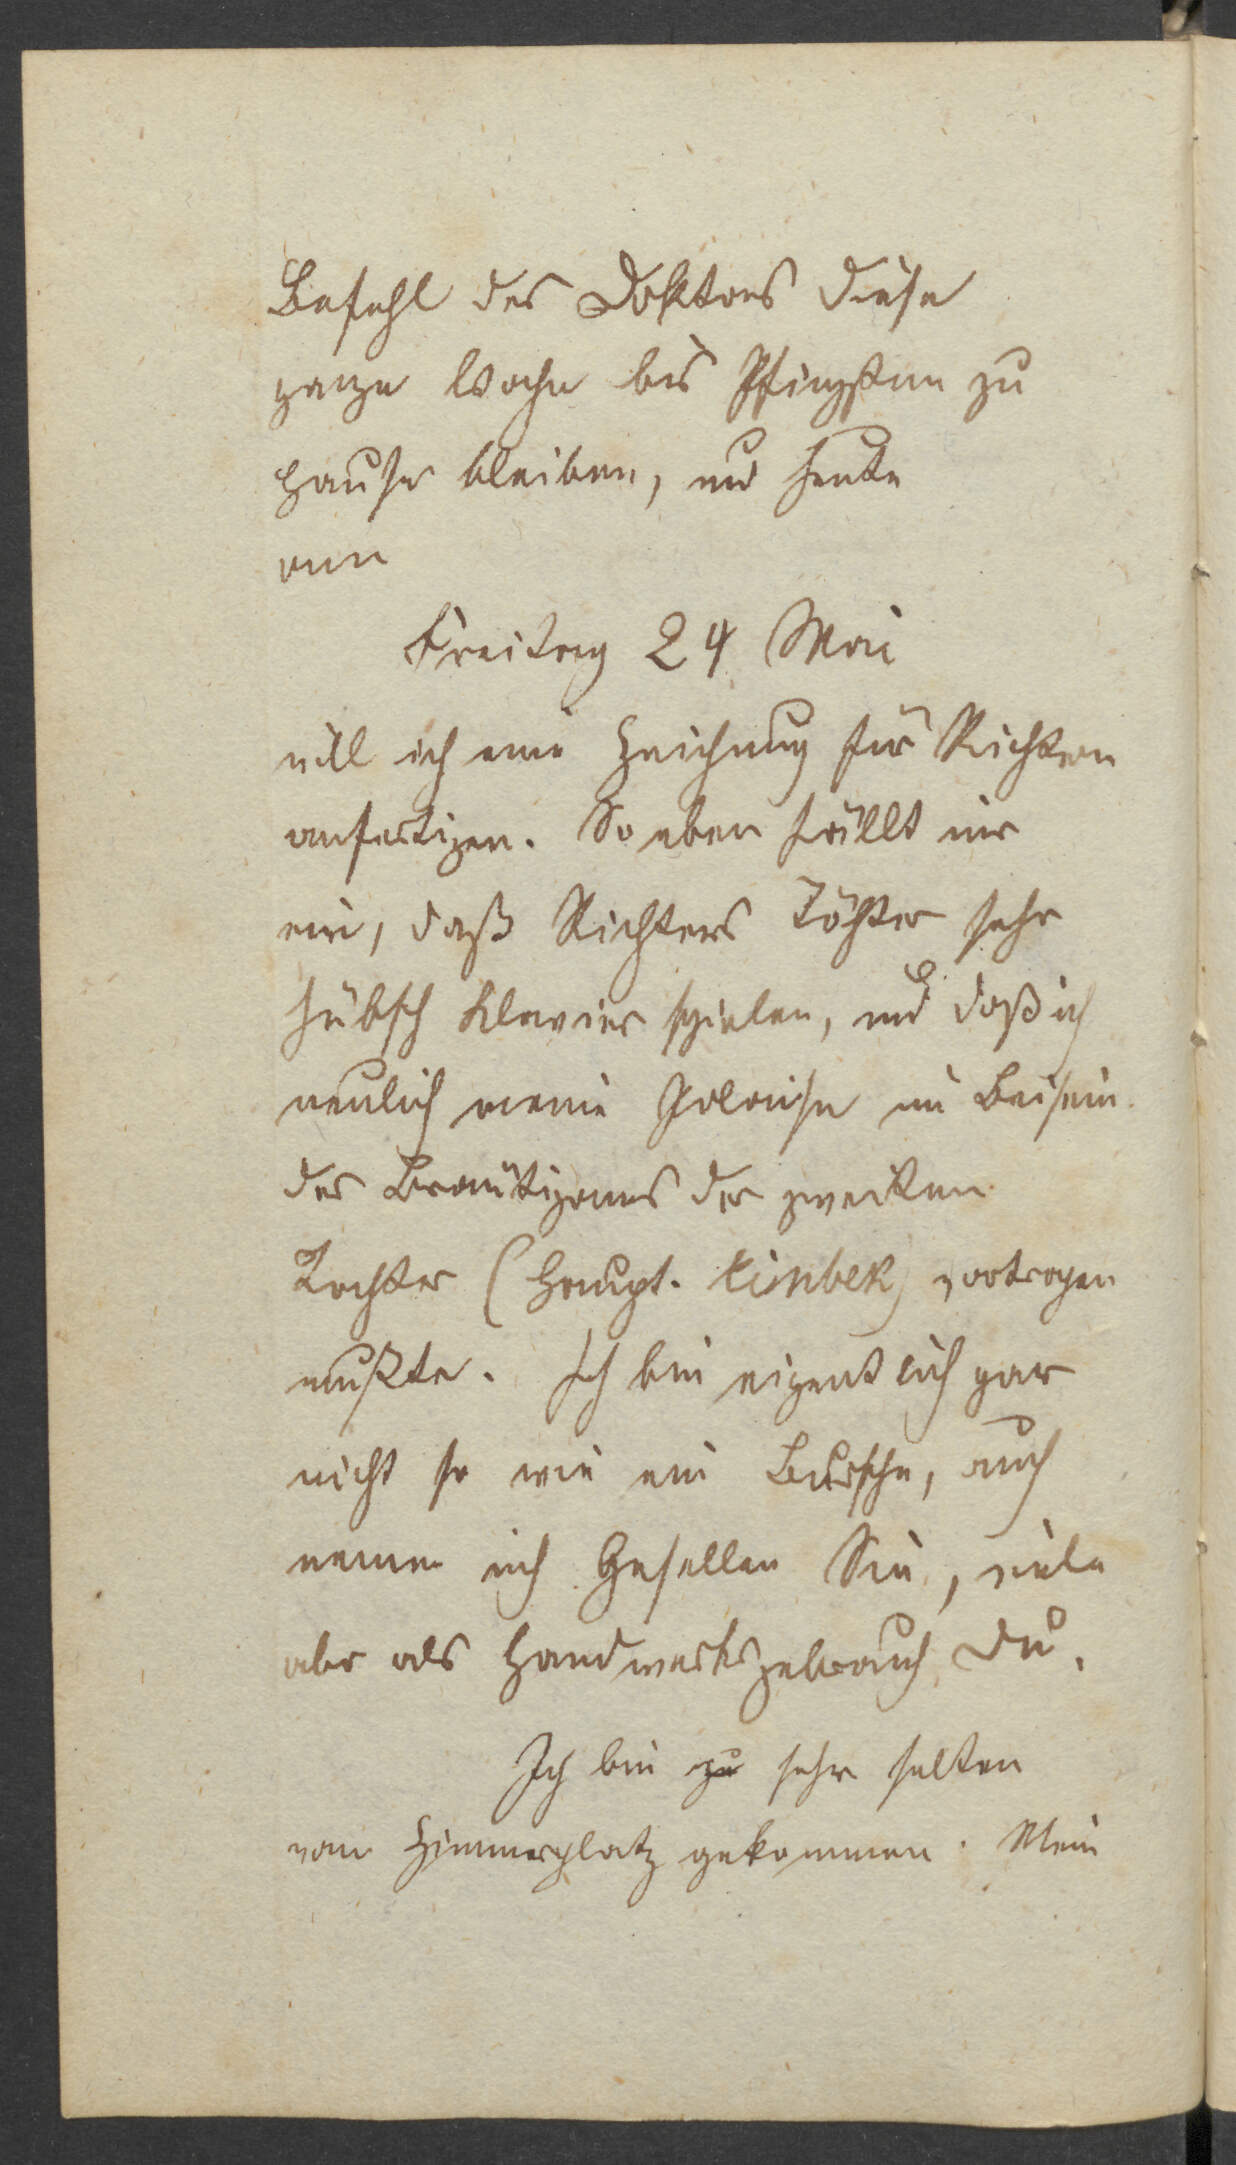 Befehl des Doktors diese
ganze Woche bis Pfingsten zu
Hause bleiben, und heute
am
Freitag 24 Mai
will ich eine Zeichnung für Richtern
anfertigen. So eben fällt mir
ein, daß Richters Töchter sehr
hübsch Klavier spielen, und daß ich
neulich meine Polonise im Beisein
des Bräutigams der zweiten
Tochter (Haupt. Limbek) vortragen
mußte. Ich bin eigentlich gar
nicht so wie ein Bursche, auch
nennen mich Gesellen Sie, viele
aber als Handwerksgebrauch Du.
Ich bin zu sehr selten
vom Zimmerplatz gekommen. Mein